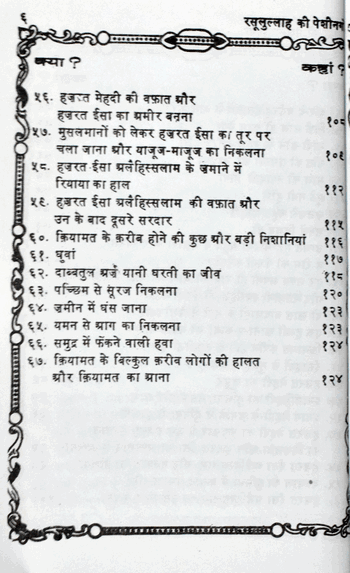 ६
रसूलुल्लाह की पेशीनगो
क्या ?
कहां ?
५६. हज़रत मेहदी की वफ़ात और
हज़रत ईसा का अमीर बनना १०८
५७. मुसलमानों को लेकर हज़रत ईसा का तूर पर
चला जाना और याजूज-माजूज का निकलना १०९
५८. हज़रत ईसा अलैहिस्सलाम के ज़माने में
रियाया का हाल ११२
५९. हज़रत ईसा अलैहिस्सलाम की वफ़ात और
उन के बाद दूसरे सरदार ११५
६०. क़ियामत के क़रीब होने की कुछ और बड़ी निशानियां ११६
६१. धुवां ११७
६२. दाब्बतुल अर्ज़ यानी धरती का जीव ११८
६३. पच्छिम से सूरज निकलना १२०
६४. ज़मीन में धंस जाना १२३
६५. यमन से आग का निकलना १२३
६६. समुद्र में फेंकने वाली हवा १२४
६७. क़ियामत के बिल्कुल क़रीब लोगों की हालत
और क़ियामत का आना १२४